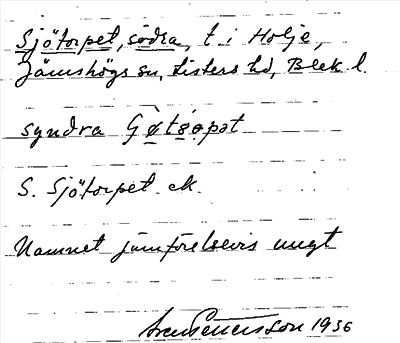 Sjötorpet, södra, t. i Holje,
Jämshögs sn, Listers hd, Blek. l.
syndra
S. Sjötorpet ek.
Namnet jämförelsevis ungt
1936